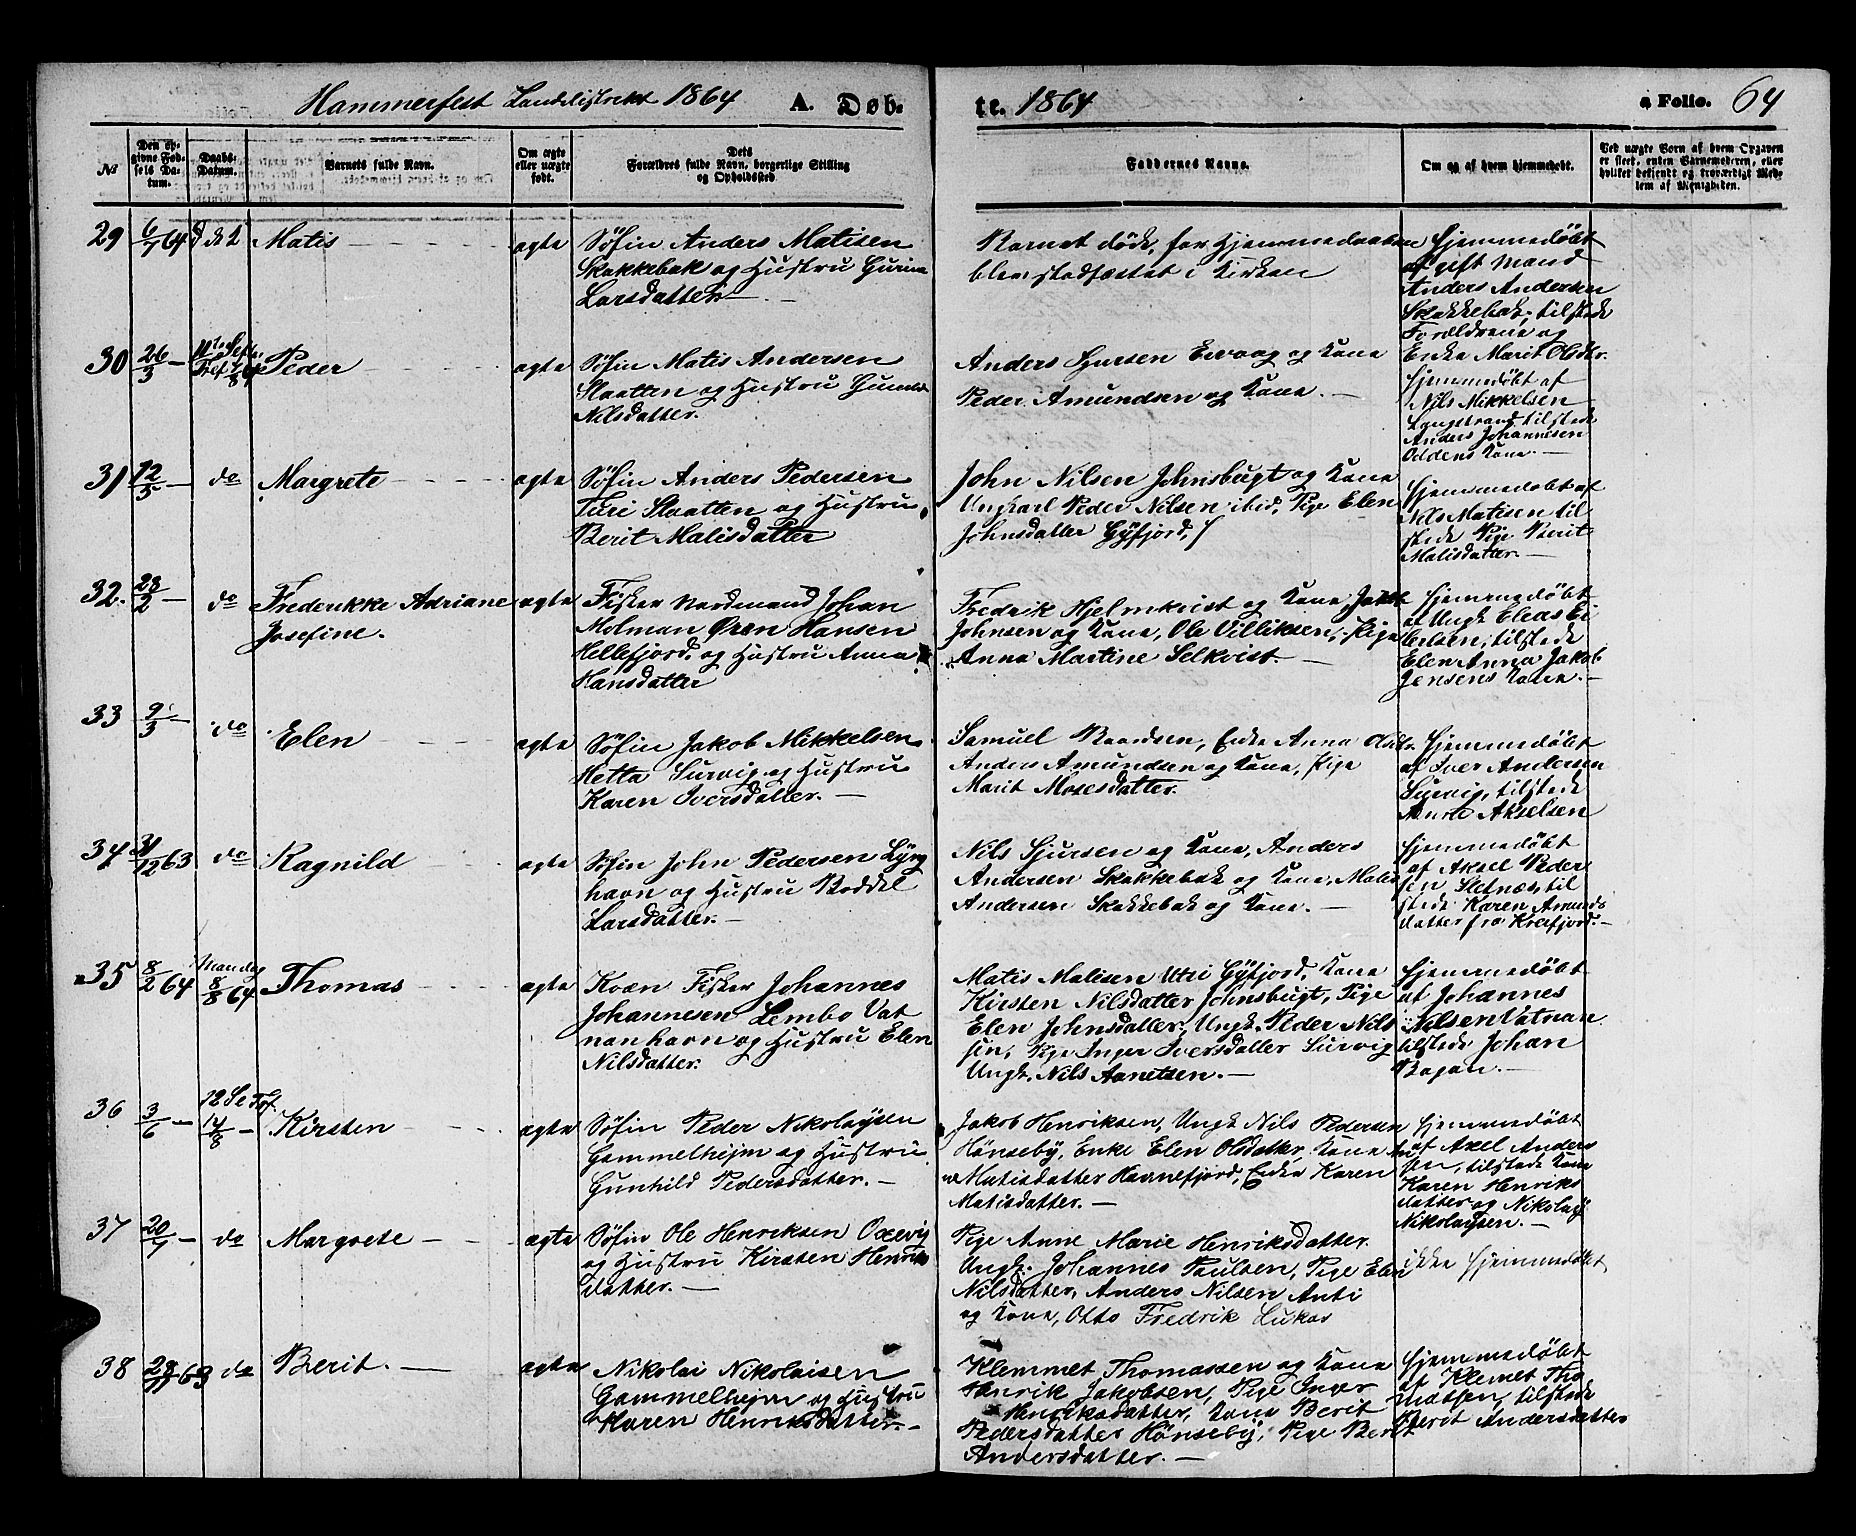 Hammerfest Landdistrikt 1864 A. Døb-
te. 1864 a Folio. 64
№
Den op-
givne Fød-
sels Da-
tum.
Daabs-
Datum.
Barnets fulde Navn.
Om ægte
eller uægte
født.
Dets
Forældres fulde Navn, borgerlige Stilling
og Opholdssted.
Faddernes Navne.
Om og af hvem hjemmedøbt.
Ved uægte Børn af hvem Opgaven
er skeet, enten Barnemoderen, eller
hvilket bekjendt og troværdigt Med-
lem af Menigheden.
29 6/7 64 Matis ægte
Søfin Anders Matisen
Skakkebak og Hustru Gurine
Larsdatter
Barnet døde, før Hjemmedaaben
blev stadfæstet i Kirken
Hjemmedøbt
af gift Mand
Anders Andersen
Skakkebak, tilstede
Forældrene og
Enke Marit Olsdtr.
30 26/3 Peder ægte
Søfin Matis Andersen
Slaatten og Hustru
Nilsdatter.
Anders Sjursen og Kone
Peder Amundsen og Kone.
Hjemmedøbt af
Nils Mikkelsen
Langstrand, tilstede
Anders Johannesen
Oddens Kone.
31 12/5 do Margrete ægte
Søfin Anders Pedersen
Turi Slaatten og Hustru
Berit Matisdatter
John Nilsen Johnsbugt og Kone
Ungkarl Peder Nilsen ibid, Pige Elen
Johnsdatter Gÿfjord,
Hjemmedøbt af
Nils Matisen til
stede Pige Berit
Matisdatter.
32. 23/2 do Frederikke Adriane ægte
Josefine.
Fisker Nordmand Johan
Molman Øren Hansen
Hellefjord, og Hustru Anna
Hansdatter
Fredrik Hjelmkvist og Kone Jakob
Johnsen og Kone, Ole Villiksen, Pige
Anna Martine Selkvist.
Hjemmedøbt
af Ungk Elias Ei
lertsen, tilstede
Elen Anna Jakob
Jensens Kone.
33 9/3 do Elen ægte
Søfin Jakob Mikkelsen
Hetta Survig og Hustru
Karen Iversdatter.
Samuel Baardsen, Enke Anna Olsdtr.
Anders Amundsen og Kone, Pige
Marit Mosesdatter.
Hjemmedøbt
af Iver Andersen
Survig, tilstede
Akselsen
34 31/12 63 do Ragnild ægte
Søfin John Pedersen Lÿng
havn og Hustru Boddel
Larsdatter.
Nils Sjursen og Kone, Anders
Andersen Skakkebak og Kone, Matis
Andersen Skakkebak og Kone.
Hjemmedøbt
af Aksel Peder
sen Sletnæs, til
stede Karen Amunds
datter fra Kræfjord.
35 8/2 64 Mandag 8/8 64 Thomas ægte
Kvæn Fisker Johannes
Johannesen Lembo Vat
nanhavn og Hustru Elen
Nilsdatter.
Matis Matisen Utsi Gÿfjord, Kone
Kirsten Nilsdatter Johnsbugt, Pige
Elen Johnsdatter, Ungk. Peder Nils
sen, Pige Inger Iversdatter Survig
Ungk. Nils
Hjemmedøbt
af Johannes
Nilsen Vatnan
tilstede Johan
36 3/6 12 Se Tref. 14/8 Kirsten ægte
Søfin Peder Nikolaÿsen
Gammelhejm og Hustru
Gunhild Pedersdatter.
Jakob Henriksen, Ungk Nils Pedersen
Hønsebÿ, Enke Elen Olsdatter, Kone An
ne Matisdatter Havnefjord, Enke Karen
Matisdatter.
Hjemmedøbt
af Axel Anders
sen, tilstede Kone
Karen Henriks
datter og Nikolaÿ
Nikolaysen.
37 20/7 do Margrete ægte
Søfin Ole Henriksen Oxevig
og Hustru Kirsten Henriks
datter.
Pige Anne Marie Henriksdatter
Ungk. Johannes Paulsen, Pige Elen
Nilsdatter, Anders Nilsen Anti
og Kone, Otto Fredrik Lukas
ikke Hjemmedøbt
38 63 do Berit. ægte
Nikolai Nikolaisen
Gammelhejm og Hustru
Karen Henriksdatter.
Klemmet Thomassen og Kone
Henrik Jakobsen, Pige Inger
Henriksdatter, Kone Berit
Pedersdatter Hønsebÿ, Pige Berit
Andersdatter.
Hjemmedøbt
af Klemet Tho
massen, tilstede
Berit Andersdatter